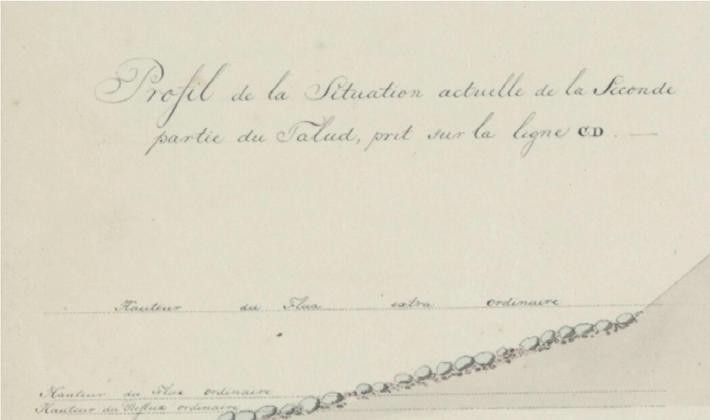 Profil de la Situation actuelle de la Seconde
partie du Talud, prit sur la ligne CD. —
Hauteur du Flux extra ordinaire
Hauteur du Flux ordinaire
Hauteur du Reflux ordinaire